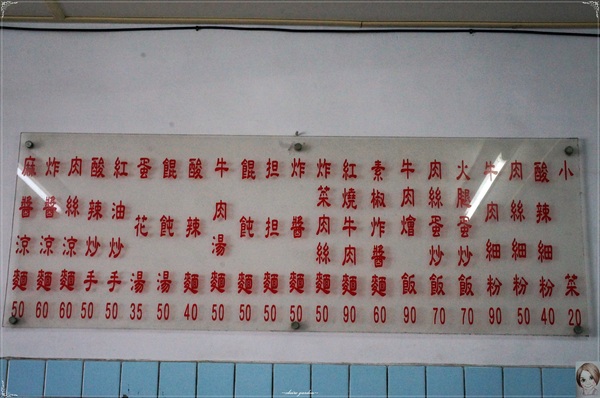 小菜 20
酸辣細粉 40
肉絲細粉 50
牛肉細粉 90
火腿蛋炒飯 70
肉絲蛋炒飯 70
牛肉燴飯 90
素椒炸醬麵 60
紅燒牛肉麵 90
炸菜肉絲麵 50
炸醬麵 50
担担麵 50
餛飩麵 50
牛肉湯麵 50
酸辣麵 40
餛飩湯 50
蛋花湯 35
紅油炒手 50
酸辣炒手 50
肉絲涼麵 60
炸醬涼麵 60
麻醬涼麵 50